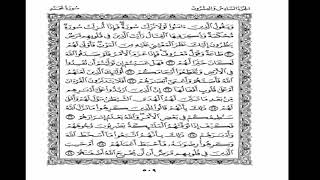 الجزء السادس والعشرون سورة محمد
ويقول الذين ءامنوا لولا نزلت سورة فإذا أنزلت سورة
محكمة وذكر فيها القتال رأيت الذين في قلوبهم مرض
ينظرون إليك نظر المغشي عليه من الموت فأولى لهم ٢٠
طاعة وقول معروف فإذا عزم الأمر فلو صدقوا الله لكان
خيرا لهم ٢١ فهل عسيتم إن توليتم أن تفسدوا
في الأرض وتقطعوا أرحامكم ٢٢ أولئك الذين لعنهم الله
فأصمهم وأعمى أبصارهم ٢٣ أفلا يتدبرون القرءان أم على
قلوب أقفالها ٢٤ إن الذين ارتدوا على أدبارهم من
بعد ما تبين لهم الهدى الشيطان سول لهم وأملى لهم
٢٥ ذلك بأنهم قالوا للذين كرهوا ما نزل الله
سنطيعكم في بعض الأمر والله يعلم إسرارهم ٢٦
فكيف إذا توفتهم الملائكة يضربون وجوههم
وأدبارهم ٢٧ ذلك بأنهم اتبعوا ما أسخط الله
وكرهوا رضوانه فأحبط أعمالهم ٢٨ أم حسب
الذين في قلوبهم مرض أن لن يخرج الله أضغانهم ٢٩
٥٠٩